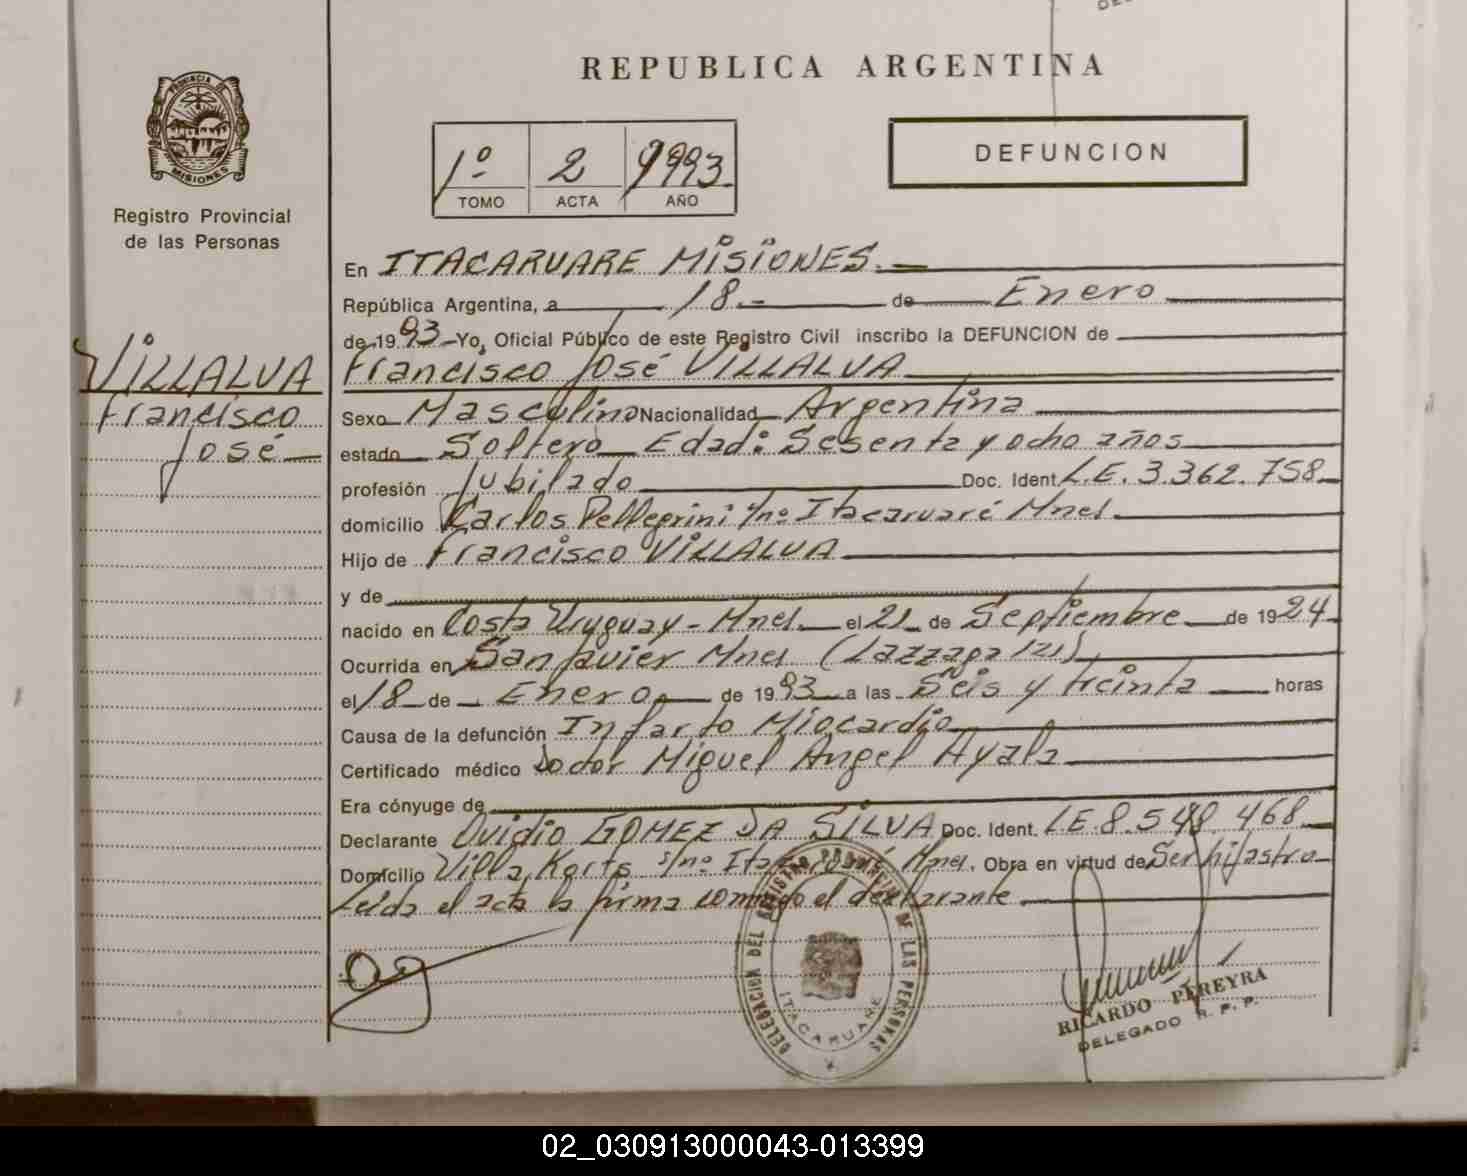 REPUBLICA ARGENTINA
PROVINCIA DE
MISIONES
Registro Provincial
de las Personas
1º 2 1993
TOMO ACTA AÑO
DEFUNCION
En ITACARUARE MISIONES.
República Argentina, a 18.- de Enero
de 1993 Yo, Oficial Público de este Registro Civil inscribo la DEFUNCION de
VILLALVA
Francisco
José
Francisco José VILLALVA
Sexo Masculino Nacionalidad Argentina
estado Soltero Edad: Sesenta y ocho años
profesión Jubilado Doc. Ident. L.E. 3.362.758
domicilio Carlos Pellegrini s/nº Itacaruaré Mnes.
Hijo de Francisco VILLALVA
y de
nacido en Costa Uruguay - Mnes. el 21 de Septiembre de 1924
Ocurrida en San Javier Mnes
el 18 de Enero de 1993 a las Seis y treinta horas
Causa de la defunción Infarto Miocardio
Certificado médico Doctor Miguel Angel Ayala
Era cónyuge de
Declarante Ovidio GOMEZ DA SILVA Doc. Ident. L.E. 8.548.468
Domicilio Villa s/nº Mnes. Obra en virtud de Ser hijastro
Leida el acta la firma conmigo el declarante
DELEGACION DEL REGISTRO PROVINCIAL DE LAS PERSONAS
ITACARUARE
RICARDO PEREYRA
DELEGADO R. P. P.
02_030913000043-013399